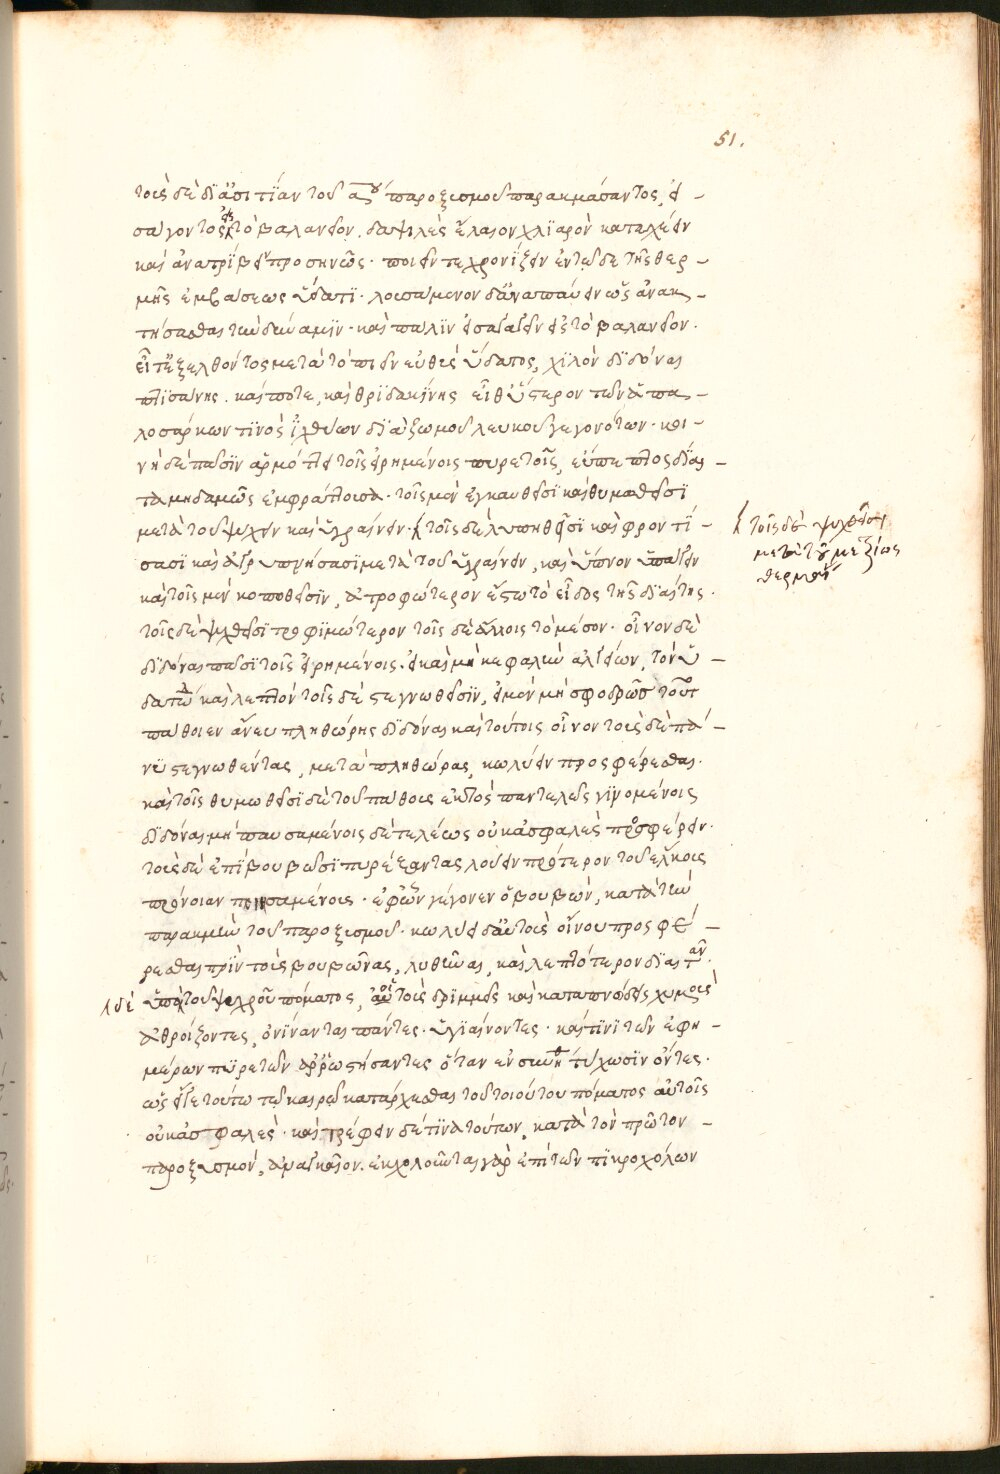 51.
τοὺς δὲ δἰ ἀσιτίαν τοῦ αου παροξυσμοῦ παρακμάσαντος, εἰ-
σάγοντος εἰς τὸ βαλανεῖον. δαψιλὲς ἔλαιον χλιαρὸν καταχέειν
καὶ ἀνατρίβειν προσηνῶς· ποιεῖν τε χρονίζειν ἐν τῷ δὲ τῆς θερ-
μῆς ἐμβάσεως ὕδατι· λουσάμενον δ' ἀναπαύειν ὡς ἀνακ-
τήσασθαι τὴν δύναμιν· καὶ πάλιν εἰσάγειν εἰς τὸ βαλανεῖον.
εἶτ' ἐξελθόντος μετὰ τὸ πιεῖν εὐθὺς ὕδατος, χυλὸν διδόναι
πτισάνης. καί ποτε, καὶ θριδακίνης εἶθ' ὕστερον τῶν ἁπα-
λοσάρκων τινὸς ἰχθύων διὰ ζωμοῦ λευκοῦ γεγονότων· κοι-
νὴ δὲ πᾶσιν ἁρμόττει τοῖς εἰρημένοις πυρετοῖς, εὔπεπτος δίαι-
τα μηδαμῶς ἐμφράττουσα· τοῖς μὲν ἐγκαυθεῖσι καὶ θυμωθεῖσι
μετὰ τοῦ ψύχειν καὶ ὑγραίνειν· τοῖς δὲ λυπηθεῖσι καὶ φροντί-
τοῖς δὲ ψυχθεῖσι
μετὰ τοῦ μετρίως
θερμαίν
σασι καὶ ἀγρυπνήσασι μετὰ τοῦ ὑγραίνειν, καὶ ὕπνον ὑπάγειν
καὶ τοῖς μὲν κοπωθεῖσιν, ἀτροφώτερον ἔστω τὸ εἶδος τῆς διαίτης.
τοῖς δὲ ψυχθεῖσι τροφιμώτερον τοῖς δὲ ἄλλοις τὸ μέσον· οἶνον δὲ
διδόναι πᾶσι τοῖς εἰρημένοις· εἰ καὶ μὴ κεφαλὴν ἀλγοῖεν, τὸν ὑ-
δατώδη καὶ λεπτὸν τοῖς δὲ στεγνωθεῖσιν, εἰ μὲν μὴ σφοδρῶς τοῦτο
πάθοιεν ἄνευ πληθώρης διδόναι καὶ τούτοις οἶνον τοὺς δὲ πά-
νυ στεγνωθέντας, μετὰ πληθώρας, κωλύειν προσφέρεσθαι.
καὶ τοῖς θυμωθεῖσι δὲ τοῦ πάθους ἐκτὸς παντελῶς γινομένοις
διδόναι· μὴ παυσαμένοις δὲ τελέως οὐκ ἀσφαλὲς προσφέρειν.
τοὺς δὲ ἐπὶ βουβῶσι πυρέξαντας λούειν πρότερον τοῦ ἕλκους
πρόνοιαν ποιησαμένους· ἐφ' ὧν γέγονεν ὁ βουβών, κατὰ τὴν
παρακμὴν τοῦ παροξυσμοῦ· κωλύει δ' αὐτοὺς οἴνου προσφέ-
ρεσθαι πρὶν τοὺς βουβῶνας, λυθῆναι, καὶ λεπτότερον διαιτᾶν.
ὑπὸ δὲ τοῦ ψυχροῦ πόματος, οἱ τοὺς δριμμεῖς καὶ καπνώδεις χυμοὺς
ἀθροίζοντες, ὀνίνανται πάντες· ὑγιαίνοντες· καὶ τινὶ τῶν ἐφη-
μέρων πυρετῶν ἀρρωστήσαντες ὅταν ἐν ἀκμῇ τύχωσιν ὄντες.
ὡς εἴγε τούτῳ τῷ καιρῷ κατάρχεσθαι τοῦ τοιούτου πόματος αὐτοῖς
οὐκ ἀσφαλὲς· καὶ τρέφειν δέ τινα τούτων, κατὰ τὸν πρῶτον
παροξυσμόν, ἀναγκαῖον. ἐκχολοῦνται γὰρ ἐπὶ τῶν πικροχόλων